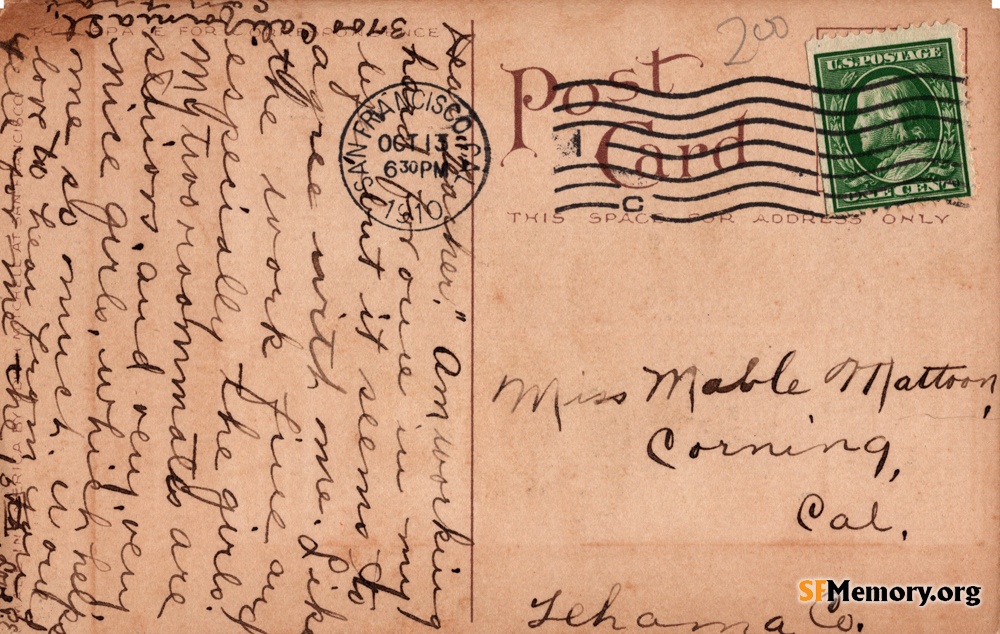 THIS SPACE FOR CORRESPONDENCE
Post
Card
THIS SPACE FOR ADDRESS ONLY
200
U.S. POSTAGE
ONE CENT
SAN FRANCISCO, CA
OCT 13
630 PM
1910
1
C
Miss Mable Mattoon,
Corning,
Cal.
Tehama Co.
3700 California St.
"Am working
hard for one in my
but it seems to
agree with me. Like
the work fine and
especially the girls.
My two roommates are
seniors and very, very
nice girls, which helps
me so much. Would
love to hear from you
SFMemory.org